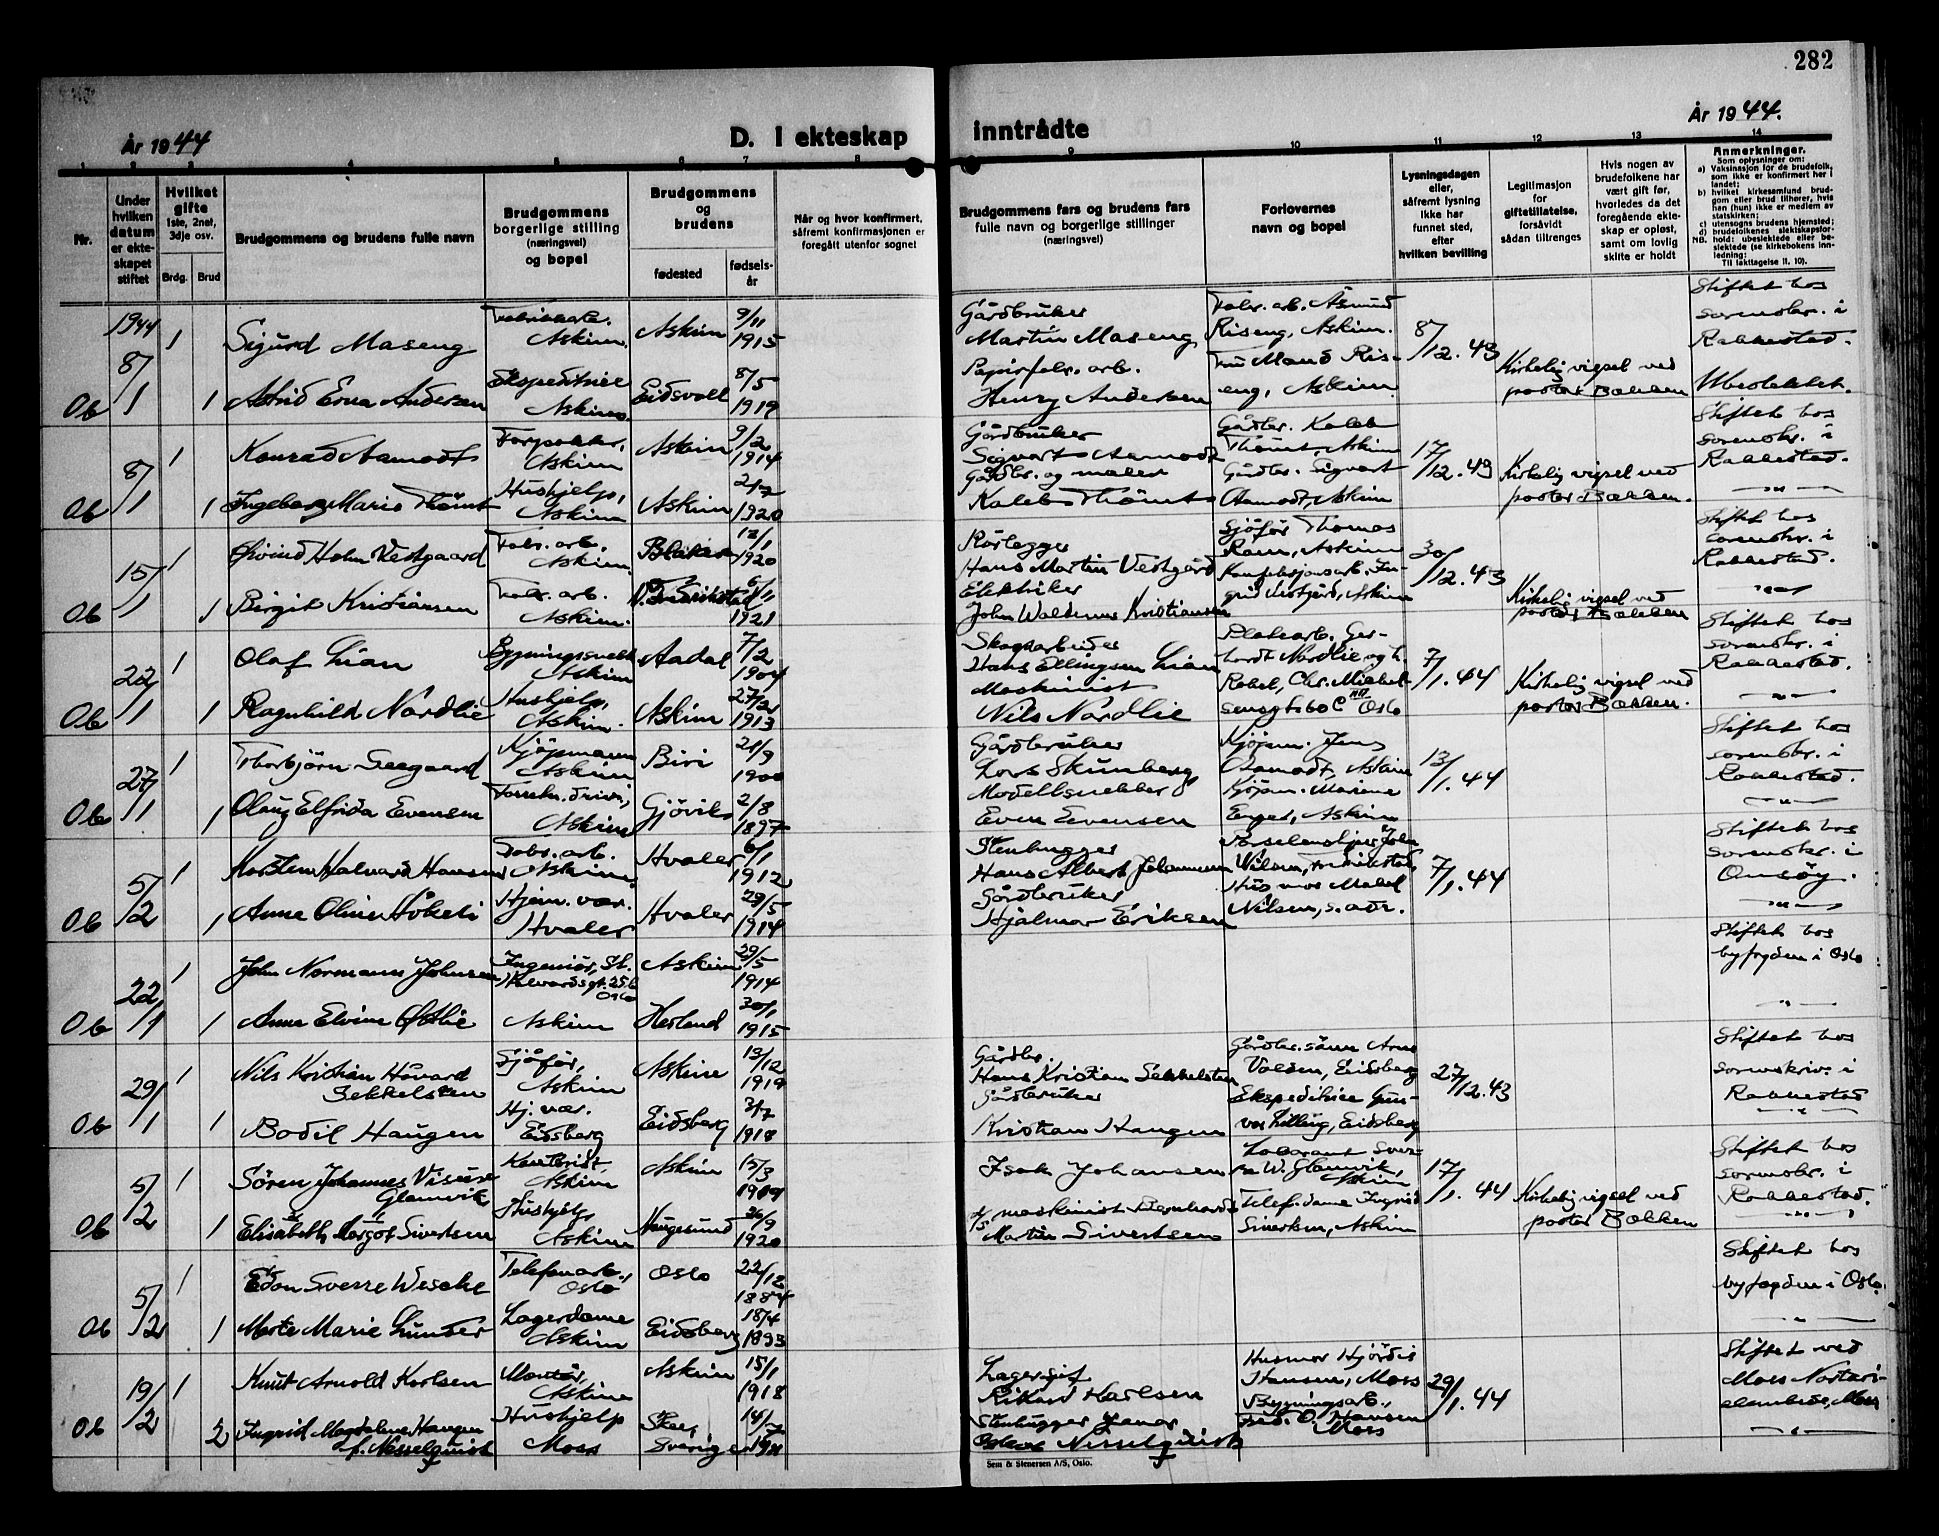 282
År 1944
D. I ekteskap
inntrådte
År 1944.
1 2 3 4 5 6 7 8 9 10 11 12 13 14
Nr.
Under hvilken datum er ekteskapet stiftet
Hvilket gifte
1ste, 2net, 3dje osv.
Brdg. Brud
Brudgommens og brudens fulle navn
Brudgommens borgerlige stilling (næringsvei) og bopel
Brudgommens og brudens
fødested
fødselsår
Når og hvor konfirmert, såfremt konfirmasjonen er foregått utenfor sognet
Brudgommens fars og brudens fars fulle navn og borgerlige stillinger (næringsvei)
Forlovernes navn og bopel
Lysningsdagen eller, såfremt lysning ikke har funnet sted, efter hvilken bevilling
Legitimasjon for giftetillatelse, forsåvidt sådan tiltrenges
Hvis nogen av brudefolkene har vært gift før, hvorledes da det foregående ekteskap er opløst, samt om lovlig skifte er holdt
Anmerkninger.
Som oplysninger om:
a) Vaksinasjon for de brudefolk, som ikke er konfirmert her i landet;
b) hvilket kirkesamfund brudgom eller brud tilhører, hvis han (hun) ikke er medlem av statskirken;
c) utensogns brudens hjemsted;
d) brudefolkenes slektskapsforhold: ubeslektede eller beslektede (se kirkebokens innledning:
NB. Til iakttagelse II. 10).
1944
8/1 1 Sigurd Maseng Askim Askim 9/11 1915
Gårdbruker Martin Maseng
Fabr. arb. Åsmund Riseng, Askim.
8/12.43
Kirkelig vigsel ved pastor Bækken
Stiftet hos sorenskr. i Rakkestad.
Ob 1 Astrid Erna Andersen Ekspeditrise Askim Eidsvoll 8/5 1919
Papirfabr. arb. Henry Andersen
Fru Maud Riseng, Askim
Ubeslektet.
8/1 1 Konrad Aamodt Askim Askim 9/2 1914
Gårdbruker Sigvart Aamodt
Gårdbr. Kaleb Thømt, Askim
17/12.43
Kirkelig vigsel ved pastor Bækken.
Stiftet hos sorenskr. i Rakkestad.
Ob 1 Ingeborg Marie Thømt Hushjelp, Askim Askim 1920
Gårdbr. og maler Kaleb Thømt
Gårdbr. Sigvart Aamodt, Askim
—"—
15/1 1 Øivind Holm Vestgaard Fabr. arb. Askim. Blaker 1920
Rørlegger Hans Martin Vestgård
Sjåfør Thomas Ram, Askim
30/12.43
Kirkelig vigsel ved pastor Bækken
Stiftet hos sorenskr. i Rakkestad.
Ob 1 Birgit Kristiansen Fabr. arb. Askim. 1921
Elektriker John Waldemar Kristiansen
Konfeksjonsarb. Ingrid Vestgård, Askim
—"—
22/1 1 Olaf Lian Askim Aadal 7/2 1904
Skogsarbeider Hans Ellingsen Lian
7/1.44
Kirkelig vigsel ved pastor Bækken.
Stiftet hos sorenskr. i Rakkestad.
Ob 1 Ragnhild Nordlie Hushjelp, Askim. Askim 1913
Maskinist Nils Nordlie
—"—
27/1 1 Thorbjørn Seegaard Kjøpmann Askim Biri 21/9 1900
Gårdbruker Lars Skumberg
Kjøpm. Jens Aamodt, Askim
13/1.44
Stiftet hos sorenskr. i Rakkestad.
Ob 1 Olaug Elfrida Evensen Askim Gjøvik 2/8 1897
Modellsnekker Even Evensen
—"—
5/2 1 Halvard Hansen Fabr. arb. Askim. Hvaler 6/1 1912
Stenhugger Hans Albert Johannesen
7/1.44
Stiftet hos sorenskr. i Onsøy.
Ob 1 Anne Oline Hj. vær. Hvaler Hvaler 29/5 1914
Gårdbruker Hjalmar Eriksen
Husmor Mabel Nilsen, s. adr.
—"—
22/1 1 John Normann Johnsen Ingeniør, St. Halvardsgt. 25 b Oslo Askim 29/5 1914
Stiftet hos byfogden i Oslo
Ob 1 Anna Elvine Østlie Askim Herland 30/1 1915
—"—
29/1 1 Nils Kristian Håvard Sekkelsten Sjåfør, Askim Askim 13/12 1919
Gårdbr. Hans Kristian Sekkelsten
Gårdbr. sønn Arne Volden, Eidsberg
27/12.43
Stiftet hos sorenskriv. i Rakkestad
Ob 1 Bodil Haugen Hj. vær. Eidsberg Eidsberg 3/7 1918
Gårdbruker Kristian Haugen
Ekspeditrise Gunvor Lilleng, Eidsberg
—"—
5/2 1 Søren Johannes Glamvik Kontorist, Askim Askim 15/3 1909
Isak Johansen
Askim
17/1.44
Kirkelig vigsel ved pastor Bækken
Stiftet hos sorenskr. i Rakkestad.
Ob 1 Elisabeth Margot Sivertsen Hushjelp Askim Haugesund 26/9 1920
maskinist Bernhard Martin Sivertsen
Telef. dame Ingrid Sivertsen, Askim
—"—
5/2 1 Sverre Wesche Telefonarb., Oslo Oslo 22/12 1887
Stiftet hos byfogden i Oslo.
Ob 1 Marte Marie Lunder Lagerdame Askim Eidsberg 18/4 1893
—"—
19/2 1 Knut Arnold Karlsen Montør, Askim Askim 15/1 1918
Rikard Karlsen
Husmor Hjørdis Hansen, Moss
29/1.44
Stiftet ved Moss Notarialembede, Moss
Ob 2 Ingrid Magdalene Haugen f. Nesselquist Hushjelp Moss Skee, Sverige
Stenhugger Oskar Nesselquist
Bygningsarb. Fred. O. Hansen Moss
—"—
Sem & Stenersen A/S, Oslo.